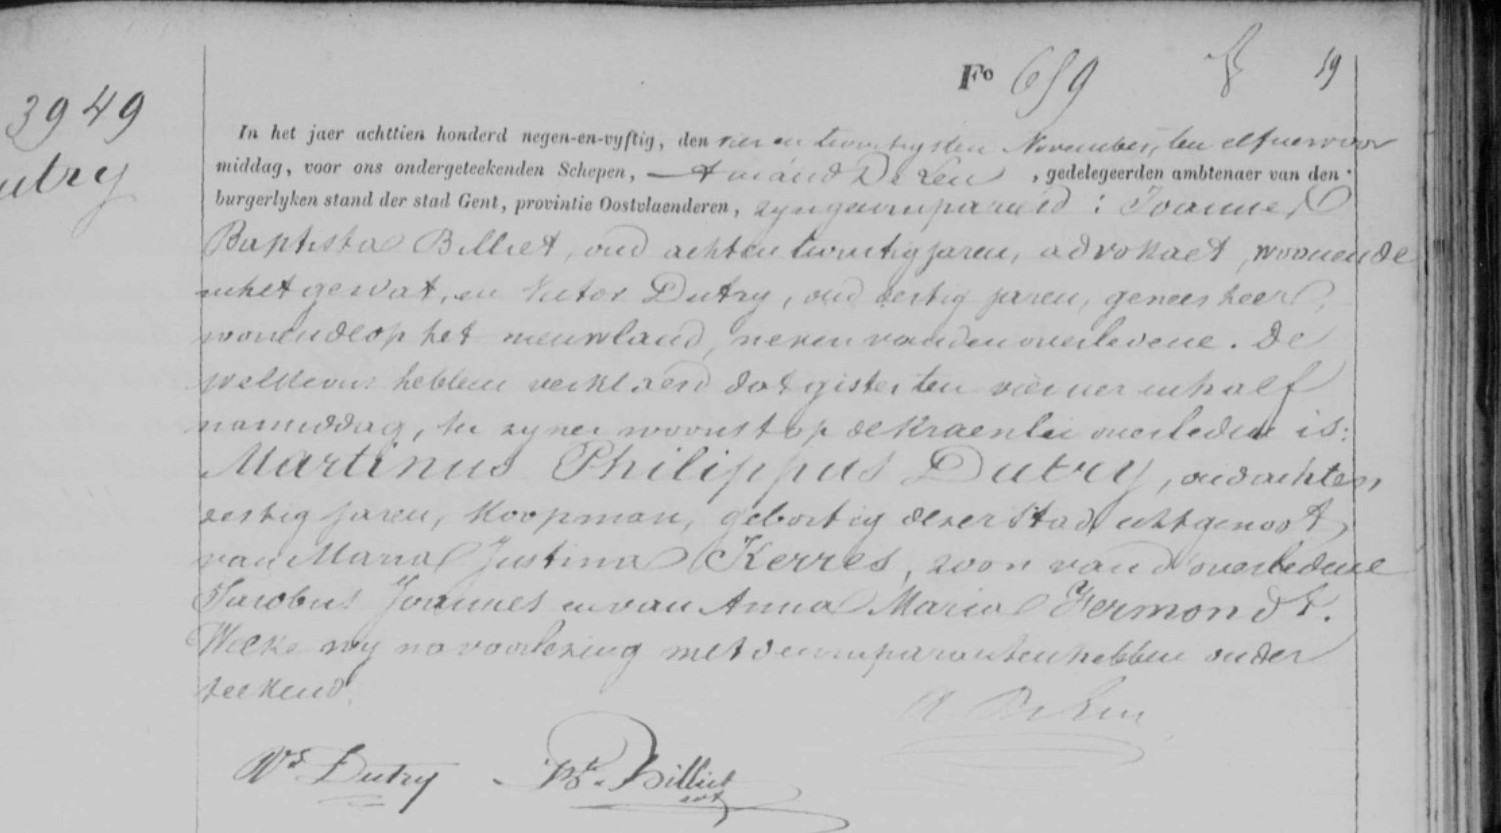 Fo 659
19
3949
utry
In het jaer achttien honderd negen-en-vyftig, den vier en twintigsten November, ten elf ure voor
middag, voor ons ondergeteekenden Schepen, Amand De Len, gedelegeerden ambtenaer van den
burgerlyken stand der stad Gent, provintie Oostvlaenderen, zyn gecompareerd : Joannes
Baptista Billiet, oud achten twintig jaren, advokaet, woonende
in het gewat, en Victor Dutry, oud dertig jaren, geneesheer,
wonende op het nieuwland, neven van den overledene. De
welke ons hebben verklaerd dat gister ten vier ure en half
namiddag, te zyner woonst op de Kraenlei overleden is:
Martinus Philippus Dutry, oud achten
zestig jaren, koopman, geboortig dezer Stad, echtgenoot
van Maria Justina Kerres, zoon van d'overledene
Jacobus Joannes en van Anna Maria Fermondt.
Welke wy na voorlezing met de comparanten hebben onder
teekend.
A De Len
Vr Dutry
Bte Billiet
avt